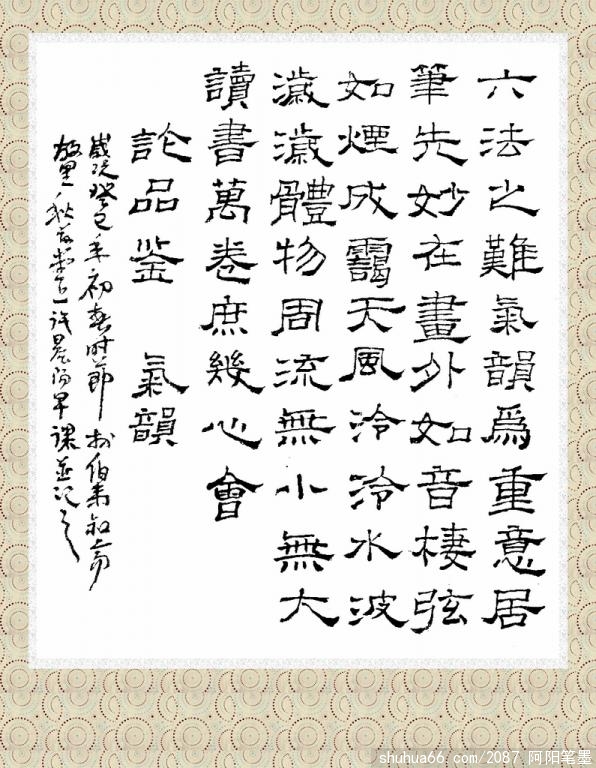 六法之難氣韻爲重意居
筆先妙在畫外如音棲弦
如煙成靄天風泠泠水波
濊濊體物周流無小無大
讀書萬卷庶幾心會
論品鉴 氣韻
歲次癸巳年初春时節於伯
故里 早課並记之
shuhua66.com/2087 阿阳笔墨